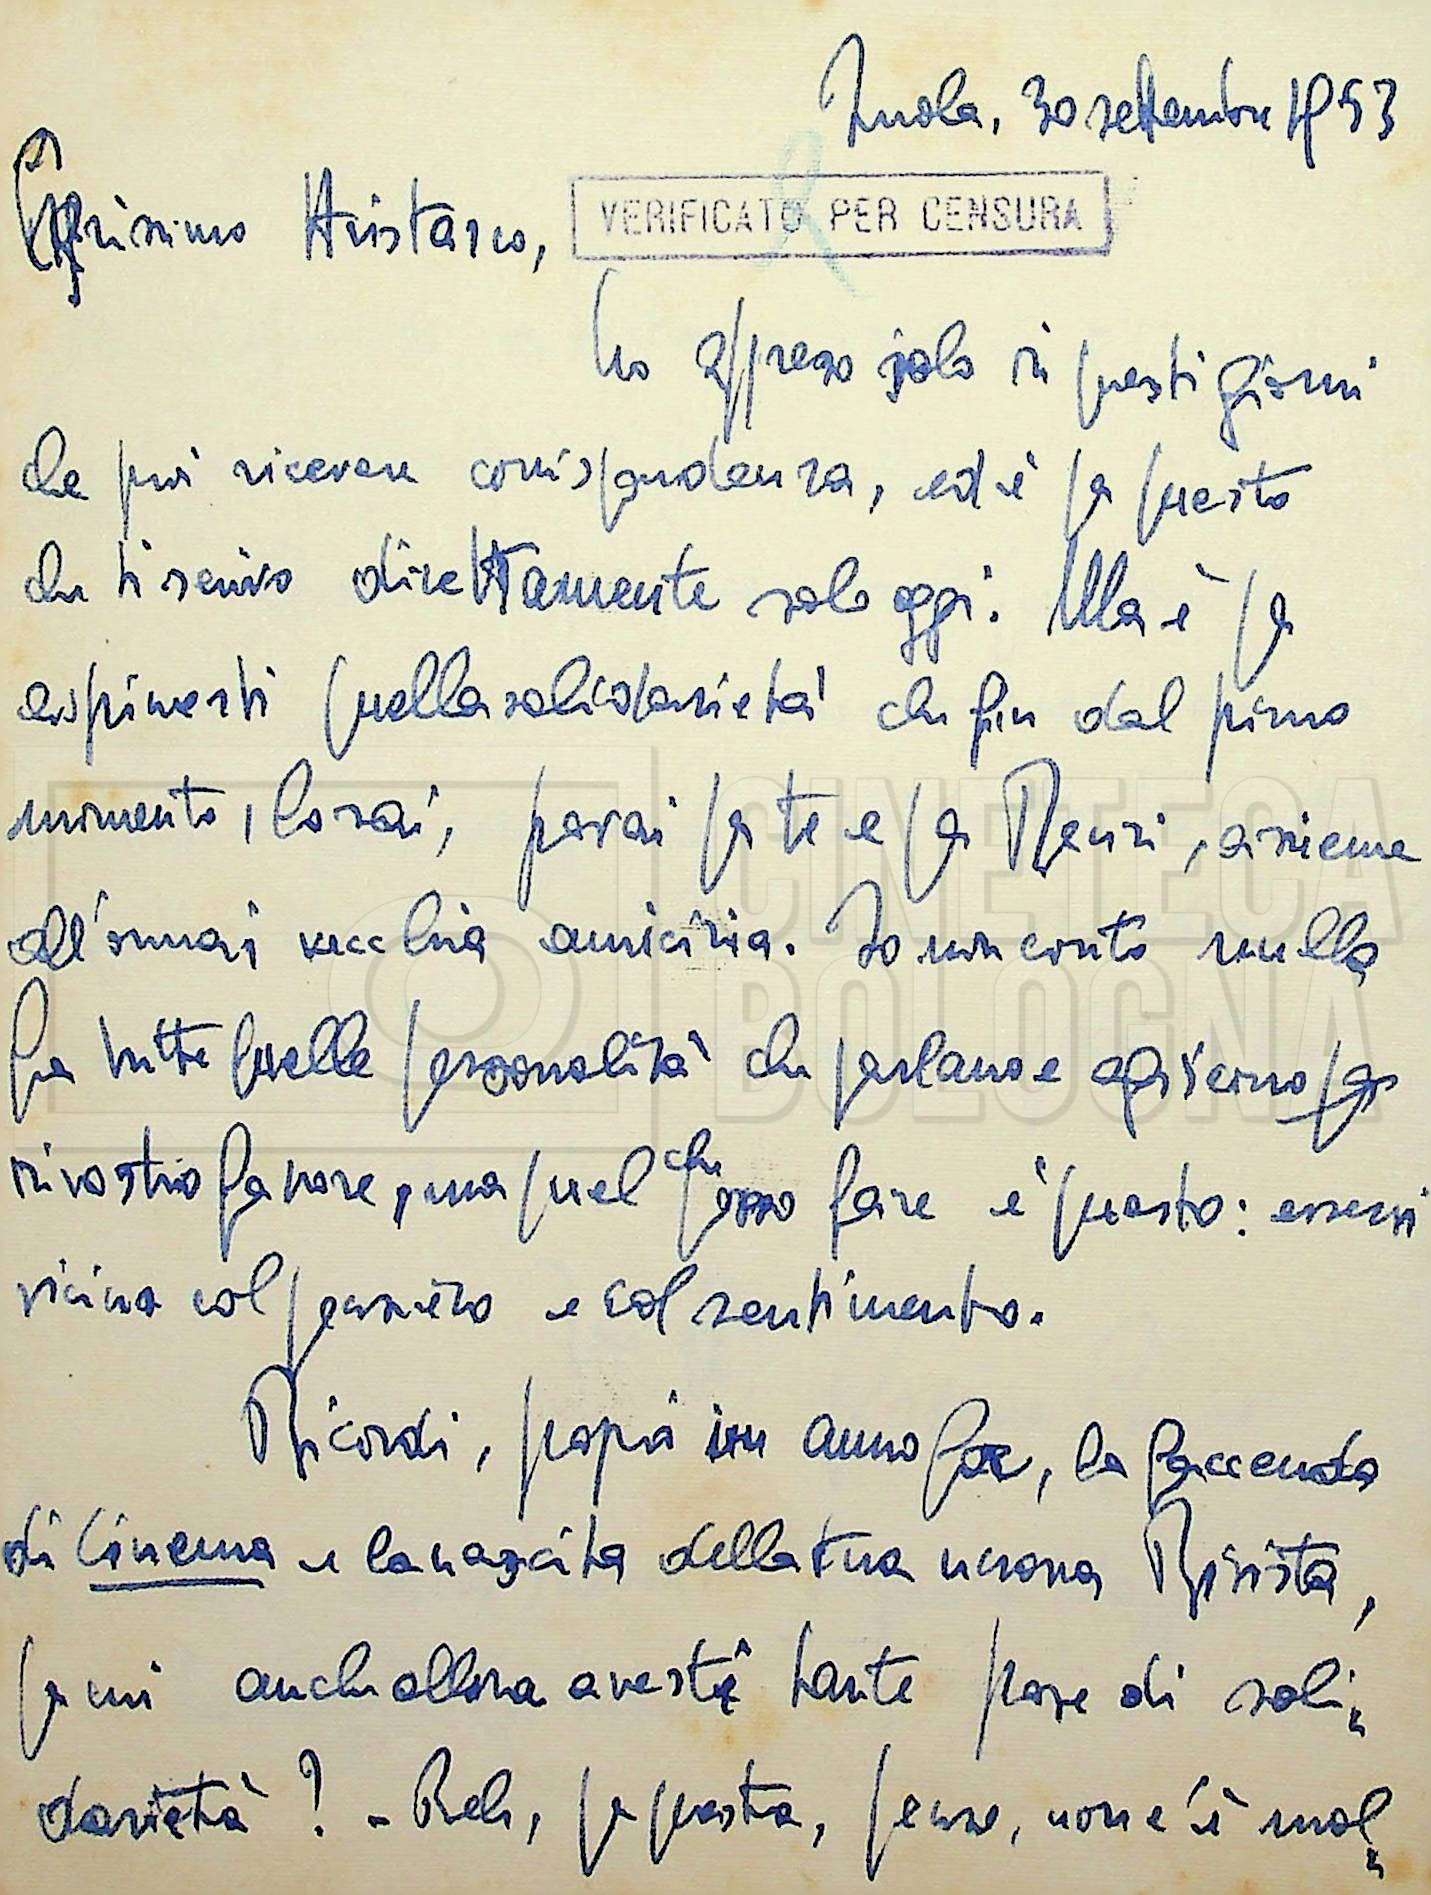 Imola, 30 settembre 1953
Carissimo Aristarco,
VERIFICATO PER CENSURA
ho appreso solo in questi giorni
che puoi ricevere corrispondenza, ed è per questo
che ti scrivo direttamente solo oggi. Ma è per
esprimerti quella solidarietà che fin dal primo
momento, lo sai, provai per te e per Renzi, assieme
all'ormai vecchia amicizia. Io non conto nulla
fra tutte quelle personalità che parlano e agiscono
in vostro favore, ma quel che posso fare è questo: esservi
vicino col pensiero e col sentimento.
Ricordi, proprio un anno fa, la faccenda
di Cinema e la nascita della tua nuova Rivista,
per cui anche allora avesti tante prove di soli-
darietà? - Beh, per questa, penso, non c'è mol-
CINETECA
BOLOGNA